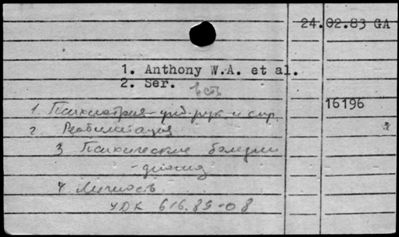 24.02.83 GA
1. Anthony W.A. et al.
2. Ser.
16196
1 Психиатрия - уч. рук. и спр.
2 Реабилитация
3 Психические болезни
- диагноз
4 Личность
УДК 616.89-08